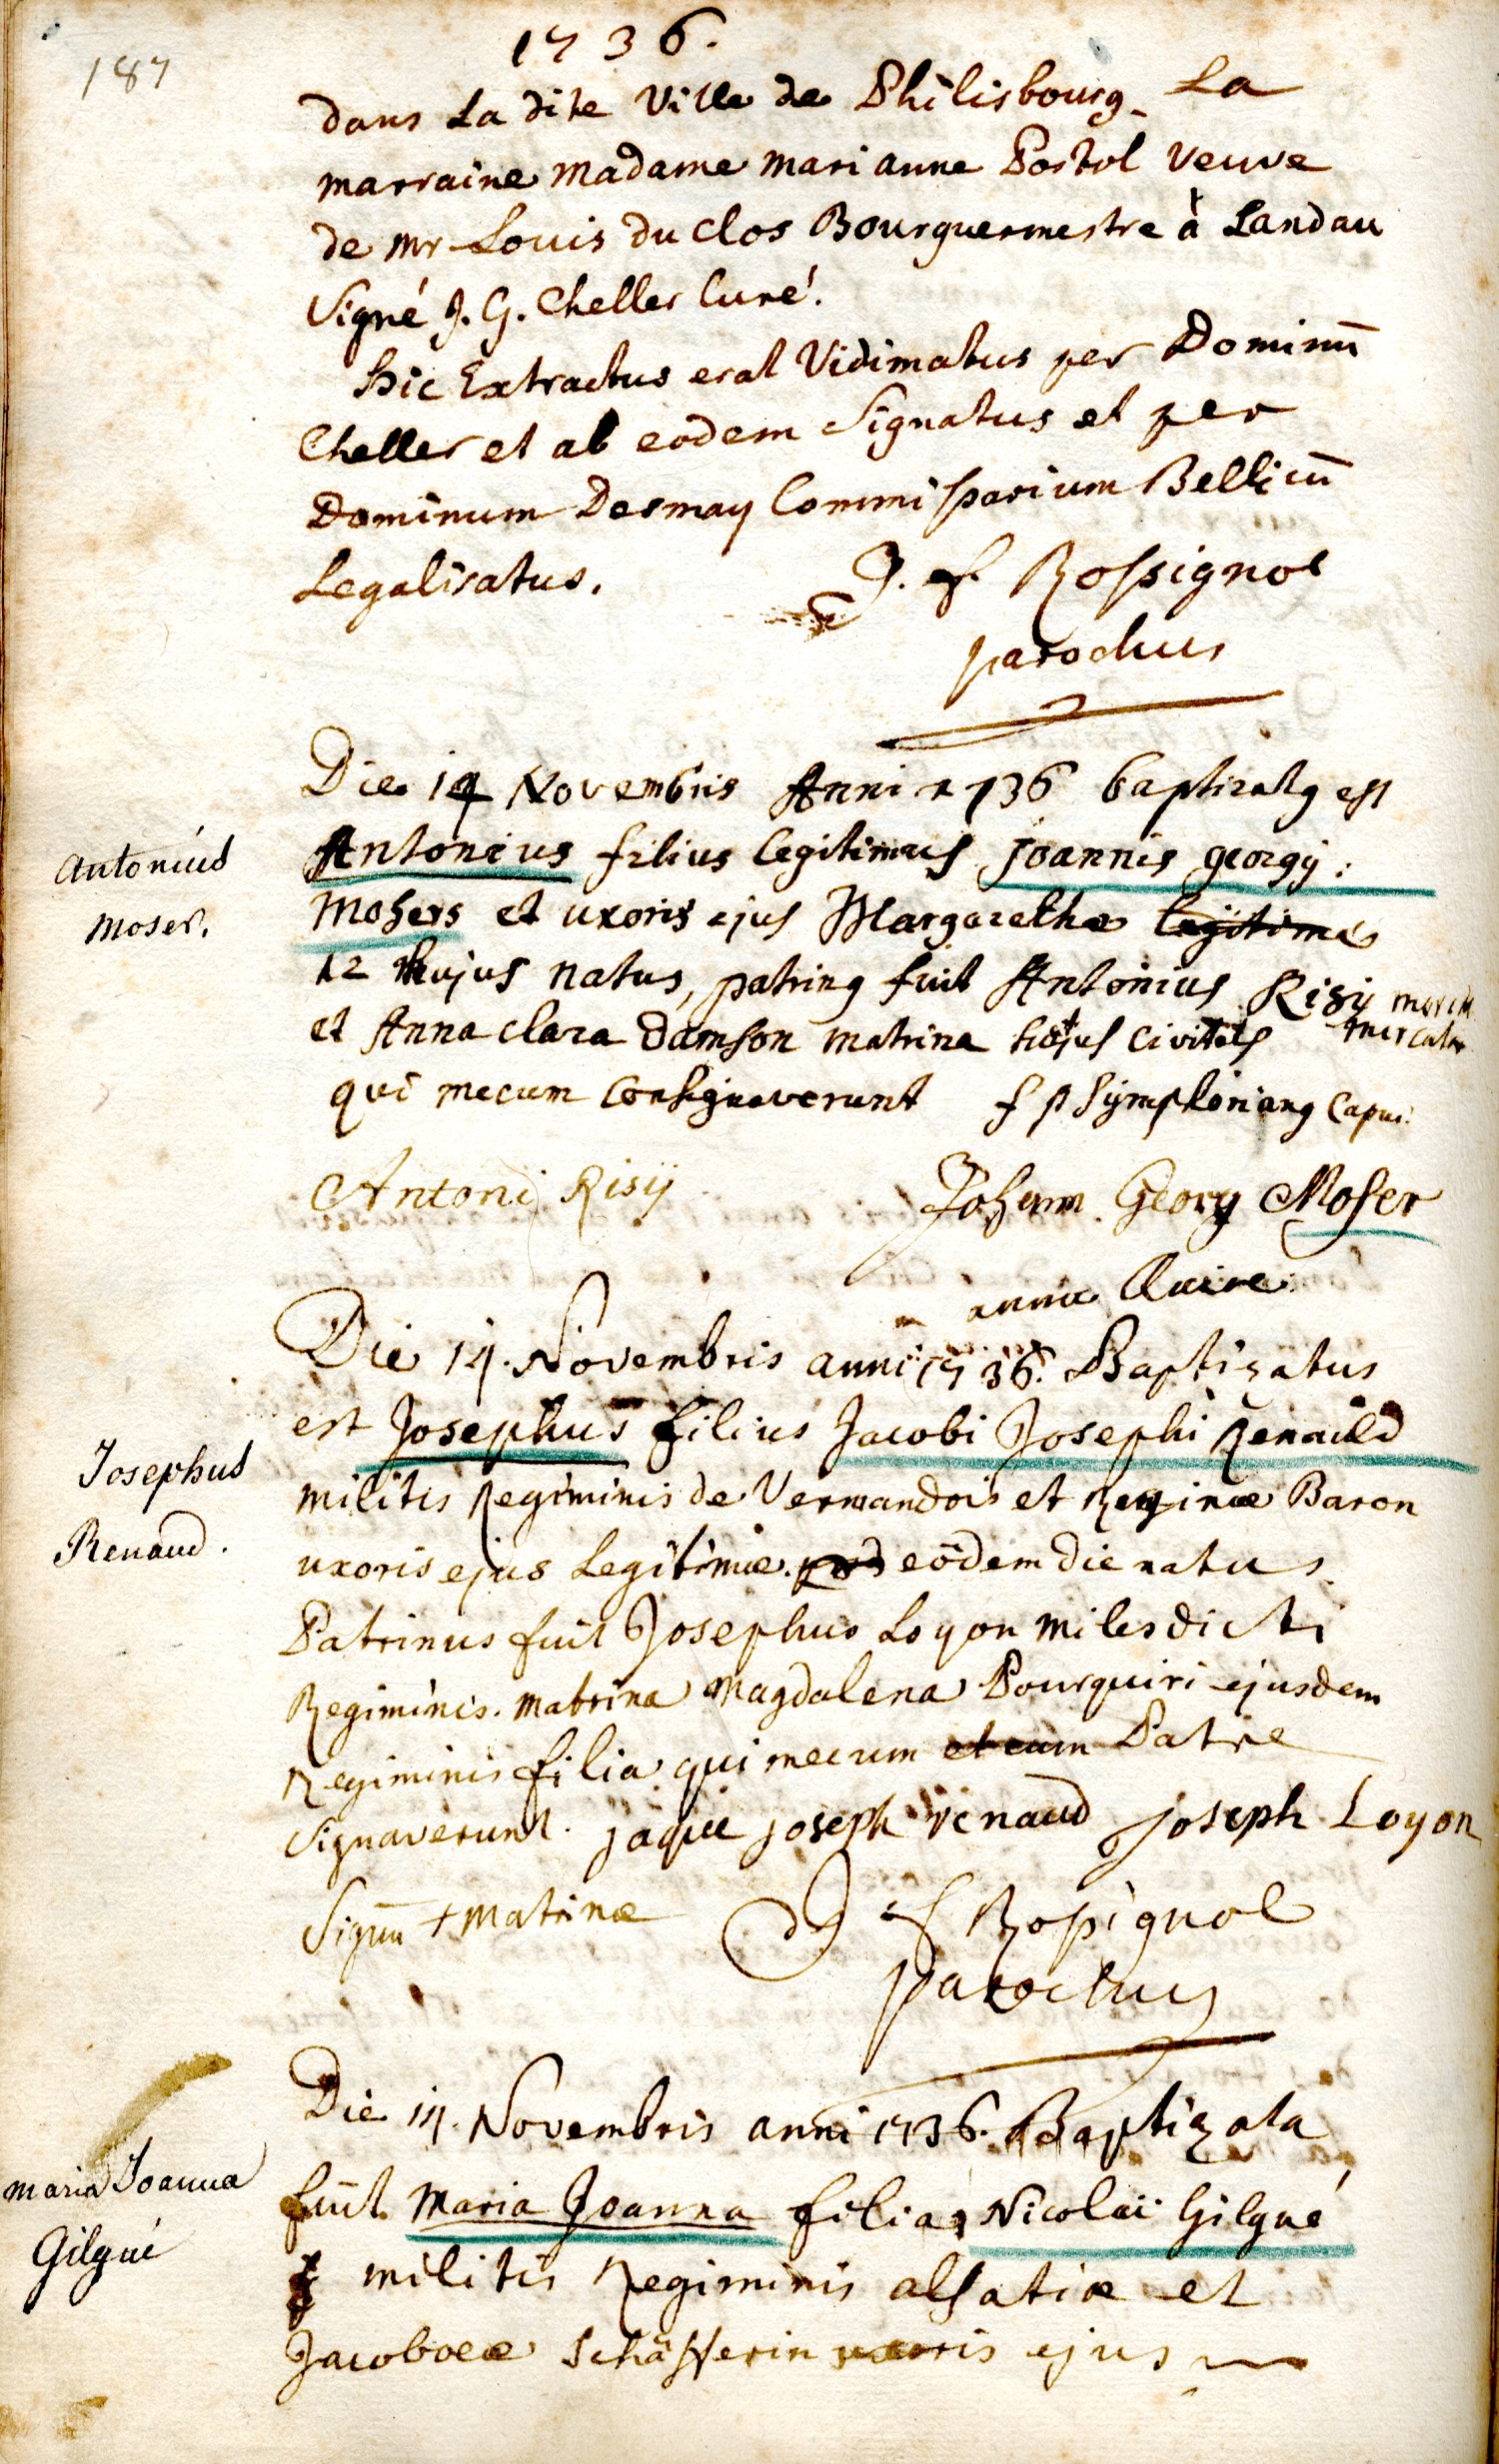 187
1736.
dans La dite Ville de Philisbourg. La
marraine Madame Marianne Postol Veuve
de Mr Louis du Clos Bourguermestre à Landau
Signé J. G. Cheller Curé.
Hic Extractus erat Vidimatus per Dominū
Cheller et ab eodem Signatus et per
Dominum Desmay Commissarium Bellicū
Legalisatus.
J. f Rossignol
parochus
Die 14 Novembris Anni 1736 baptizatq est
Antonius
Moser.
Antonius filius legitimus Joannis georgij
Mosers et uxoris ejus Margarethæ legitimæ
12 hujus natus, patrinq fuit Antonius Risij
mercator
et Anna Clara Damson matrina hujus civitatis
qui mecum Consignaverunt f p Symphorianq Capuc.
Antoni Risij
Johann Georg Moser
anna Claire
Die 14. Novembris anni 1736. Baptizatus
est Josephus filius Jacobi Josephi Renauld
Josephus
Renaud.
militis Regiminis de Vermandois et Reginæ Baron
uxoris ejus Legitimæ. eodem die natus
Patrinus fuit Josephus Loyon miles dicti
Regiminis. Matrina Magdalena Pourquiri ejusdem
Regiminis filia qui mecum et cum Patre
Signaverunt. jaque joseph renaud joseph Loyon
Signū + Matrinæ
J f Rossignol
parochus
Die 14. Novembris anni 1736. Baptizata
maria Joanna
Gilgué
fuit Maria Joanna filia Nicolai Gilgué
militis Regiminis alsatiæ et
Jacobeæ Schäfferin uxoris ejus